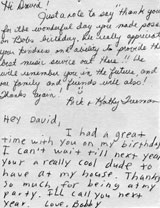 Hi David!
Just a note to say thank you
for the wonderful day you made possible
on Bobs birthday. We really appreciate
your kindness and ability to provide the
best music service and fun!!! We
will remember you in the future, and
our family and friends will also!
Thanks again!
Rick & Kathy
Hey David,
I had a great
time with you on my birthday
I can't wait till next year
your a really cool dude to
have at my house. Thanks
so much for being at my
party. I'll call you next
year. Love, Bobby